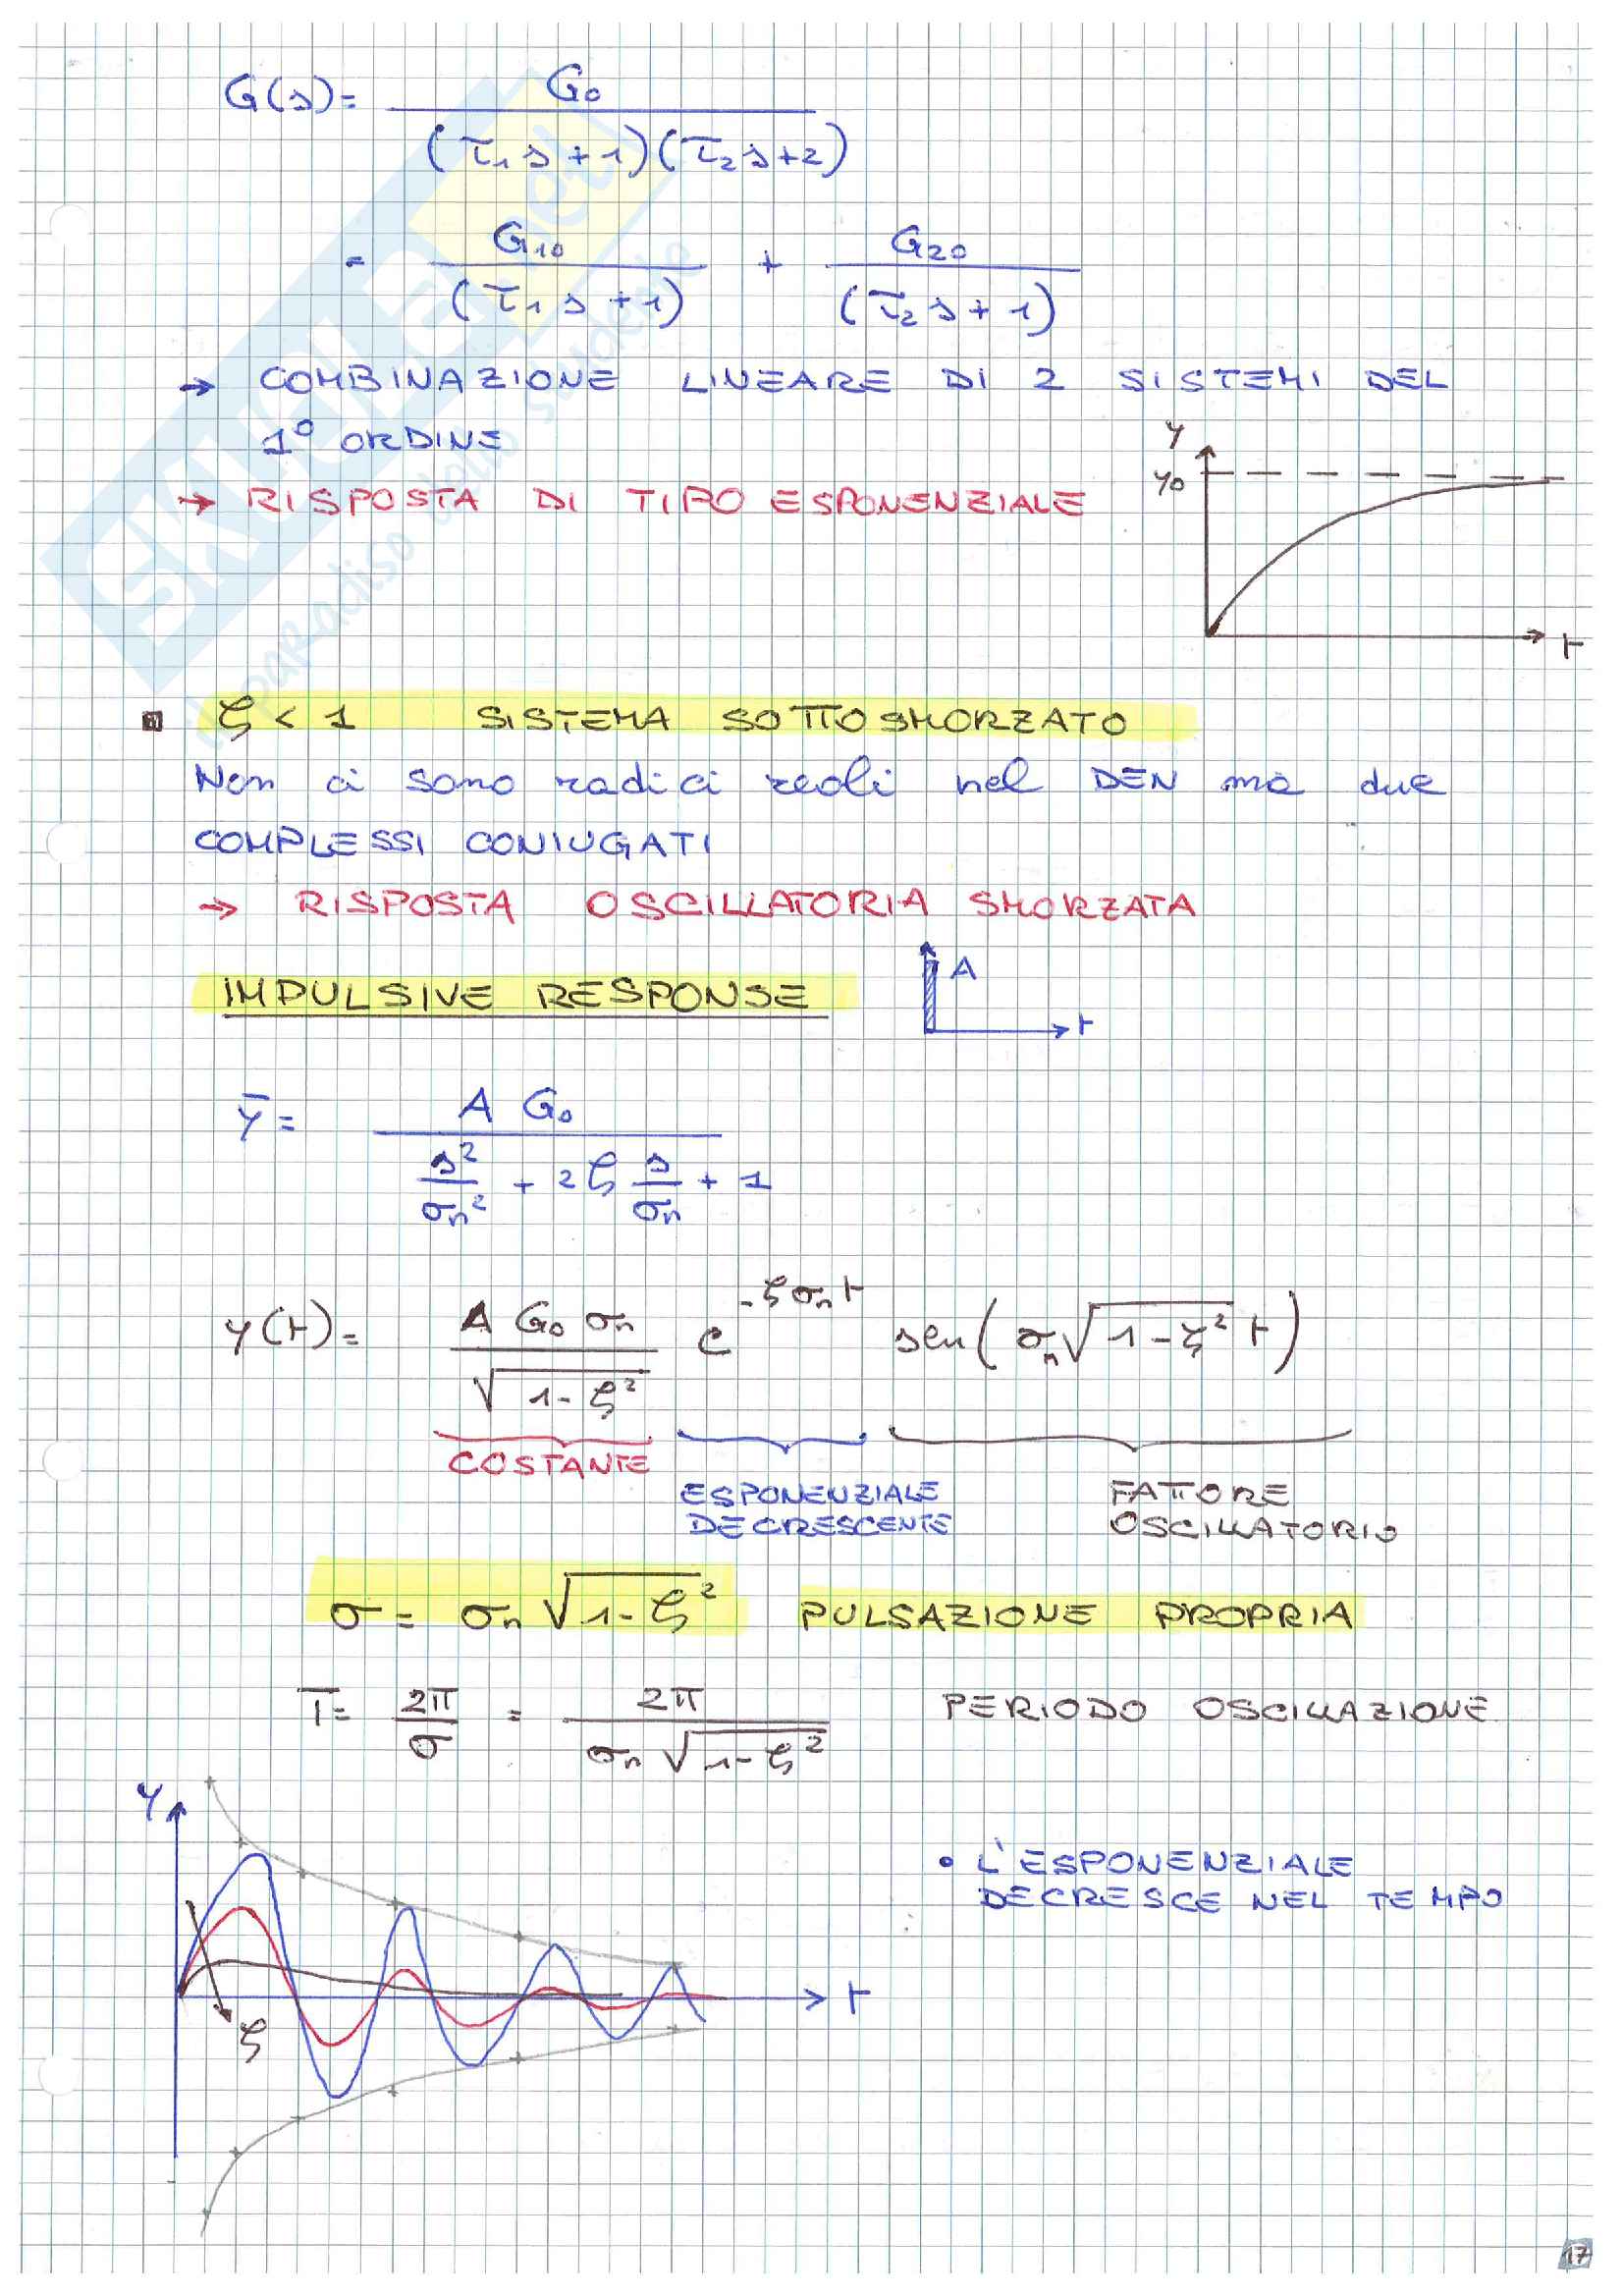 G(s) = G₀ / (τ₁s + 1)(τ₂s + 2)
= G₁₀ / (τ₁s + 1) + G₂₀ / (τ₂s + 1)
→ COMBINAZIONE LINEARE DI 2 SISTEMI DEL
1° ORDINE
→ RISPOSTA DI TIPO ESPONENZIALE
y
y₀
t
ζ < 1 SISTEMA SOTTOSMORZATO
Non ci sono radici reali nel DEN ma due
COMPLESSI CONIUGATI
→ RISPOSTA OSCILLATORIA SMORZATA
IMPULSIVE RESPONSE
A
t
ȳ = A G₀ / (s²/σₙ² + 2ζ s/σₙ + 1)
y(t) = A G₀ σₙ / √(1-ζ²) e^(-ζσₙt) sen(σₙ√(1-ζ²) t)
COSTANTE
ESPONENZIALE
DECRESCENTE
FATTORE
OSCILLATORIO
σ = σₙ √(1-ζ²) PULSAZIONE PROPRIA
T = 2π/σ = 2π / σₙ√(1-ζ²) PERIODO OSCILLAZIONE
y
t
ζ
• L'ESPONENZIALE
DECRESCE NEL TEMPO
17
SKUOLA.net
il paradiso dello studente